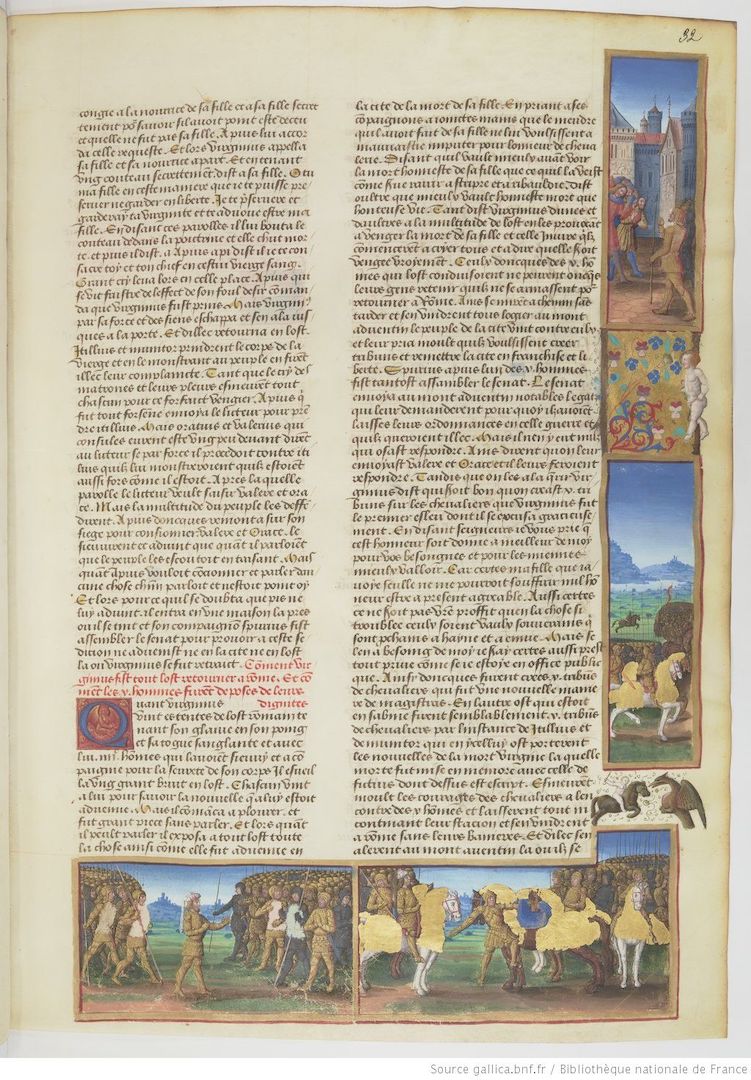 32
congie a la nourrice de sa fille et a sa fille secre
tement po᷑ savoir sil avoit point este deceu
et quelle ne fut pas sa fille. Apius lui accor
da celle requeste. Et lors virginius appella
sa fille et sa nourrice a part. Et en tenant
ung couteau secretement dist a sa fille. O tu
ma fille en ceste maniere que ie te puisse pre
server ne garder en liberte. Je te p̃serveré et
garderay ta virginite et te advoue estre ma
fille. En disant ces parolles il lui bouta le
couteau dedans la poictrine et elle chut mor
te. et puis il dist. a Apius api dist il ie te con
sacre toy et ton chief en cestui vierge sang.
Grant cry leva lors en celle place. Apius qui
se vit frustre de leffect de son foul desir cõman
da que virginius fust prins. Mais virgini᷒
par sa force et des siens eschappa et sen ala ius
ques a la porte. Et dillec retourna en lost.
Itillius et numitor prindrent le corps de la
vierge et en le monstrant au peuple en firent
illec leur complainte. Tant que le cry des
matrones et leurs pleurs esmeurent tout
chascun pour ce forfait venger. Apius q̃
fut tout forsene envoya le licteur pour pren
dre itillius. Mais oratius et valerius qui
consules eurent este ung peu devant dirẽt
au licteur se par force il procedoit contre iti
lius quilz lui monstreroient quilz estoiẽt
aussi fors cõme il estoit. Apres la quelle
parolle le licteur veult saisir valere et ora
ce. Mais la multitude du peuple les deffẽ
dirent. Apius doncques remonta sur son
siege pour consionner valere et orace. Ilz
le suivirent et advint que quãt ilz parloiẽt
que le peuple les escoutoit en taisant. Mais
quãt apius vouloit cõsionner et parler dau
cune chose chũn parloit et nestoit point oy
Et lors pour ce quil se doubta que pis ne
luy advint. il entra en une maison la pres
ou il se tint et son compaignon spurius fist
assembler le senat pour provoir a ceste se
dition ne advenist ne en la cite ne en lost
la ou virginius se fut retrait. Cõment vir
ginius fist tout lost retourner a rõme. Et cõ
ment les .x. hommes furent deposes de leurs
Quant virginius dignites
vint es tentes de lost romain te
nant son glaive en son poing
et sa togue sanglante et avec
lui .iiii. hõmes qui lavoiẽt sieury et a cõ
paigne pour la seurte de son corps Il esueil
la ung grant bruit en lost. Chascun vint
a lui pour savoir la nouvelle q̃ a luy estoit
advenue. Mais il cõmẽca a plourer. et
fut grant piece sans parler. Et lors quãt
il peult parler il exposa a tout lost toute
la chose ainsi cõme elle fut advenue en
la cite de la mort de sa fille. En priant a ses
compaignons a ioinctes mains que le meurdre
quil avoit fait de sa fille ne lui voulsissent a
mauvaistie imputer pour lonneur de cheva
lerie. Disant quil vault mieulx avoir veir
la mort honneste de sa fille que ce quil la veist
cõme serve ravir a stupre et a ribauldie. Dist
oultre que mieulx vault honneste mort que
honteuse vie. Tant dist virginius dunes et
daultres a la multitude de lost en les provocãt
a venger la mort de sa fille et celle iniure q̃lz
commencerent a cryer tous et a dire quelle seroit
vengee vroyement. Ceulx doncques des .x. hõ
mes qui lost conduisoient ne peurent oncq̃s
leurs gens retenir quilz ne se armassent po᷑
retourner a Rome. Ains se mirẽt a chemin sãs
tarder et sen vindrent tous logier au mont
adventin le peuple de la cite vint contre eulx
et leur pria moult quilz voulsissent creer
tribuns et remettre la cite en franchise et li
berte. Spurius apius lun des .x. hommes
fist tantost assambler le senat. Le senat
envoya au mont adventin notables legatz
qui leur demanderent pour quoy ilz avoiẽt
laisses leurs ordonnances en celle guerre et
quilz queroient illec. Mais il nen y eut nul
qui osast respondre. Ains dirent quon leur
envoyast valere et Orace et ilz leurs feroient
respondre. Tandis que on les ala querir vir
ginius dist quil soit bon quon creast .x. tri
buns sur les chevaliers que virginius fut
le premier esleu dont il se excusa gracieuse
ment. En disant seigneurs ie vous prie q̃
cest honneur soit donne a meilleur de moy
pour vos besongnes et pour les miennes
mieulx valloir. Car certes ma fille que ia
voye seulle ne me pourroit souffrir nul hõ
neur estre a present agreable. Aussi certes
ce ne soit pas vr̃e proffit quen la chose si
troublee ceulx soient vaulx souverains q̃
sont prochains a hayne et a envie. Mais se
len a besoing de moy ie say certes aussi prest
tout prive cõme se ie estoye en office public
que. Ainsy doncques furent creés .x. tribũs
de chevaliers qui fut une nouvelle mame
re de magistras. En lautre ost qui estoit
en sabine furent semblablement .x. tribũs
de chevaliers par linstance de Itillius et
de numitor qui en ycelluy ost porterent
les nouvelles de la mort virginie la quelle
morte fut mise en memore avec celle de
sutius dont dessus est escript. Esmeurẽt
moult les courages des chevaliers a len
contre des .x. hõmes et laisserent tout in
continant leur stacion et sen vindrent
a rõme sans leurs banieres. Et dilec sen
alerent au mont aventin la ou ilz se
Source gallica.bnf.fr / Bibliothèque nationale de France